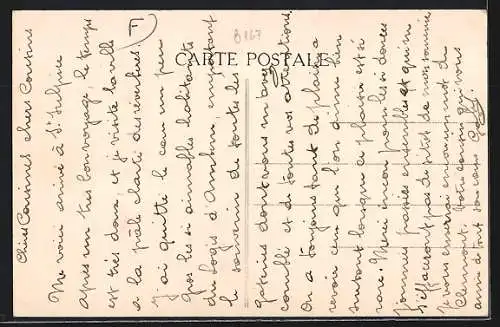 B 167
CARTE POSTALE
Chères Cousines chers Cousins
Me voici arrivé à St Sulpice
après un très bon voyage, le temps
est très doux, et je visite la ville
à la pâle clarté des réverbères.
J'ai quitté le cœur un peu
gros les si aimables habitants
du logis d'Ambo, emportant
le souvenir de toutes les
gâteries dont vous m'avez
comblé et de toutes vos attentions.
On a toujours tant de plaisir à
revoir ceux que l'on aime bien
surtout lorsque ce plaisir est si
rare. Merci encore pour les si douces
journées passées ensemble et qui ne
s'effaceront pas de sitôt de ma mémoire
Je vous enverrai encore un mot de
Clermont. Votre cousin qui vous
aime de tout son cœur